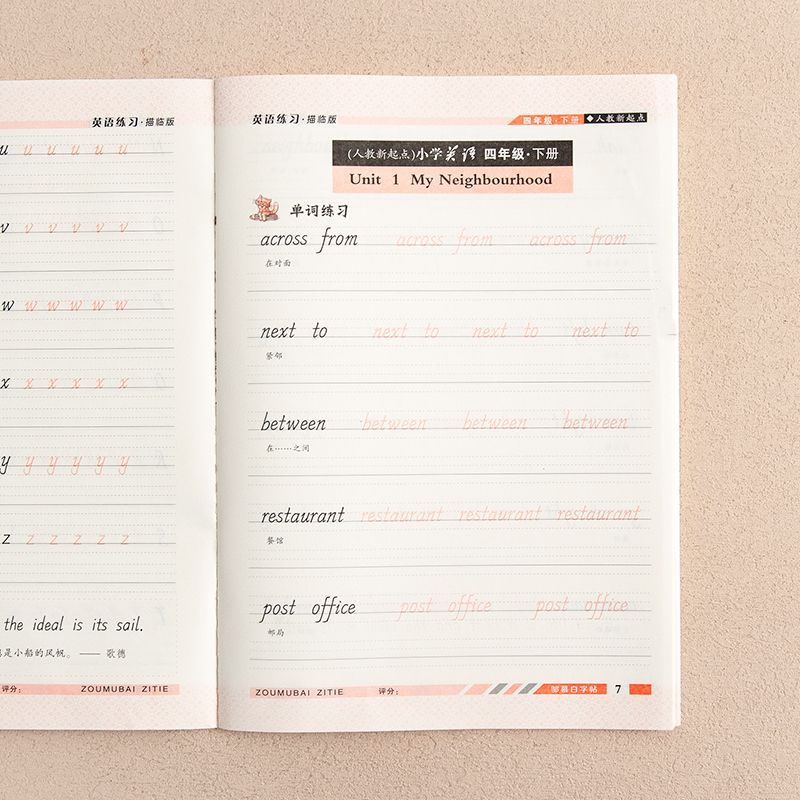 英语练习·描临版
u u u u u u
v v v v v v
w w w w w w
x x x x x x
y y y y y y
z z z z z z
the ideal is its sail.
是小船的风帆。 —— 歌德
评分: ZOUMUBAI ZITIE
英语练习·描临版 四年级·下册 ◆人教新起点
(人教新起点)小学英语 四年级·下册
Unit 1 My Neighbourhood
单词练习
across from across from across from
在对面
next to next to next to next to
紧邻
between between between between
在……之间
restaurant restaurant restaurant restaurant
餐馆
post office post office post office
邮局
ZOUMUBAI ZITIE 评分: 邹慕白字帖 7